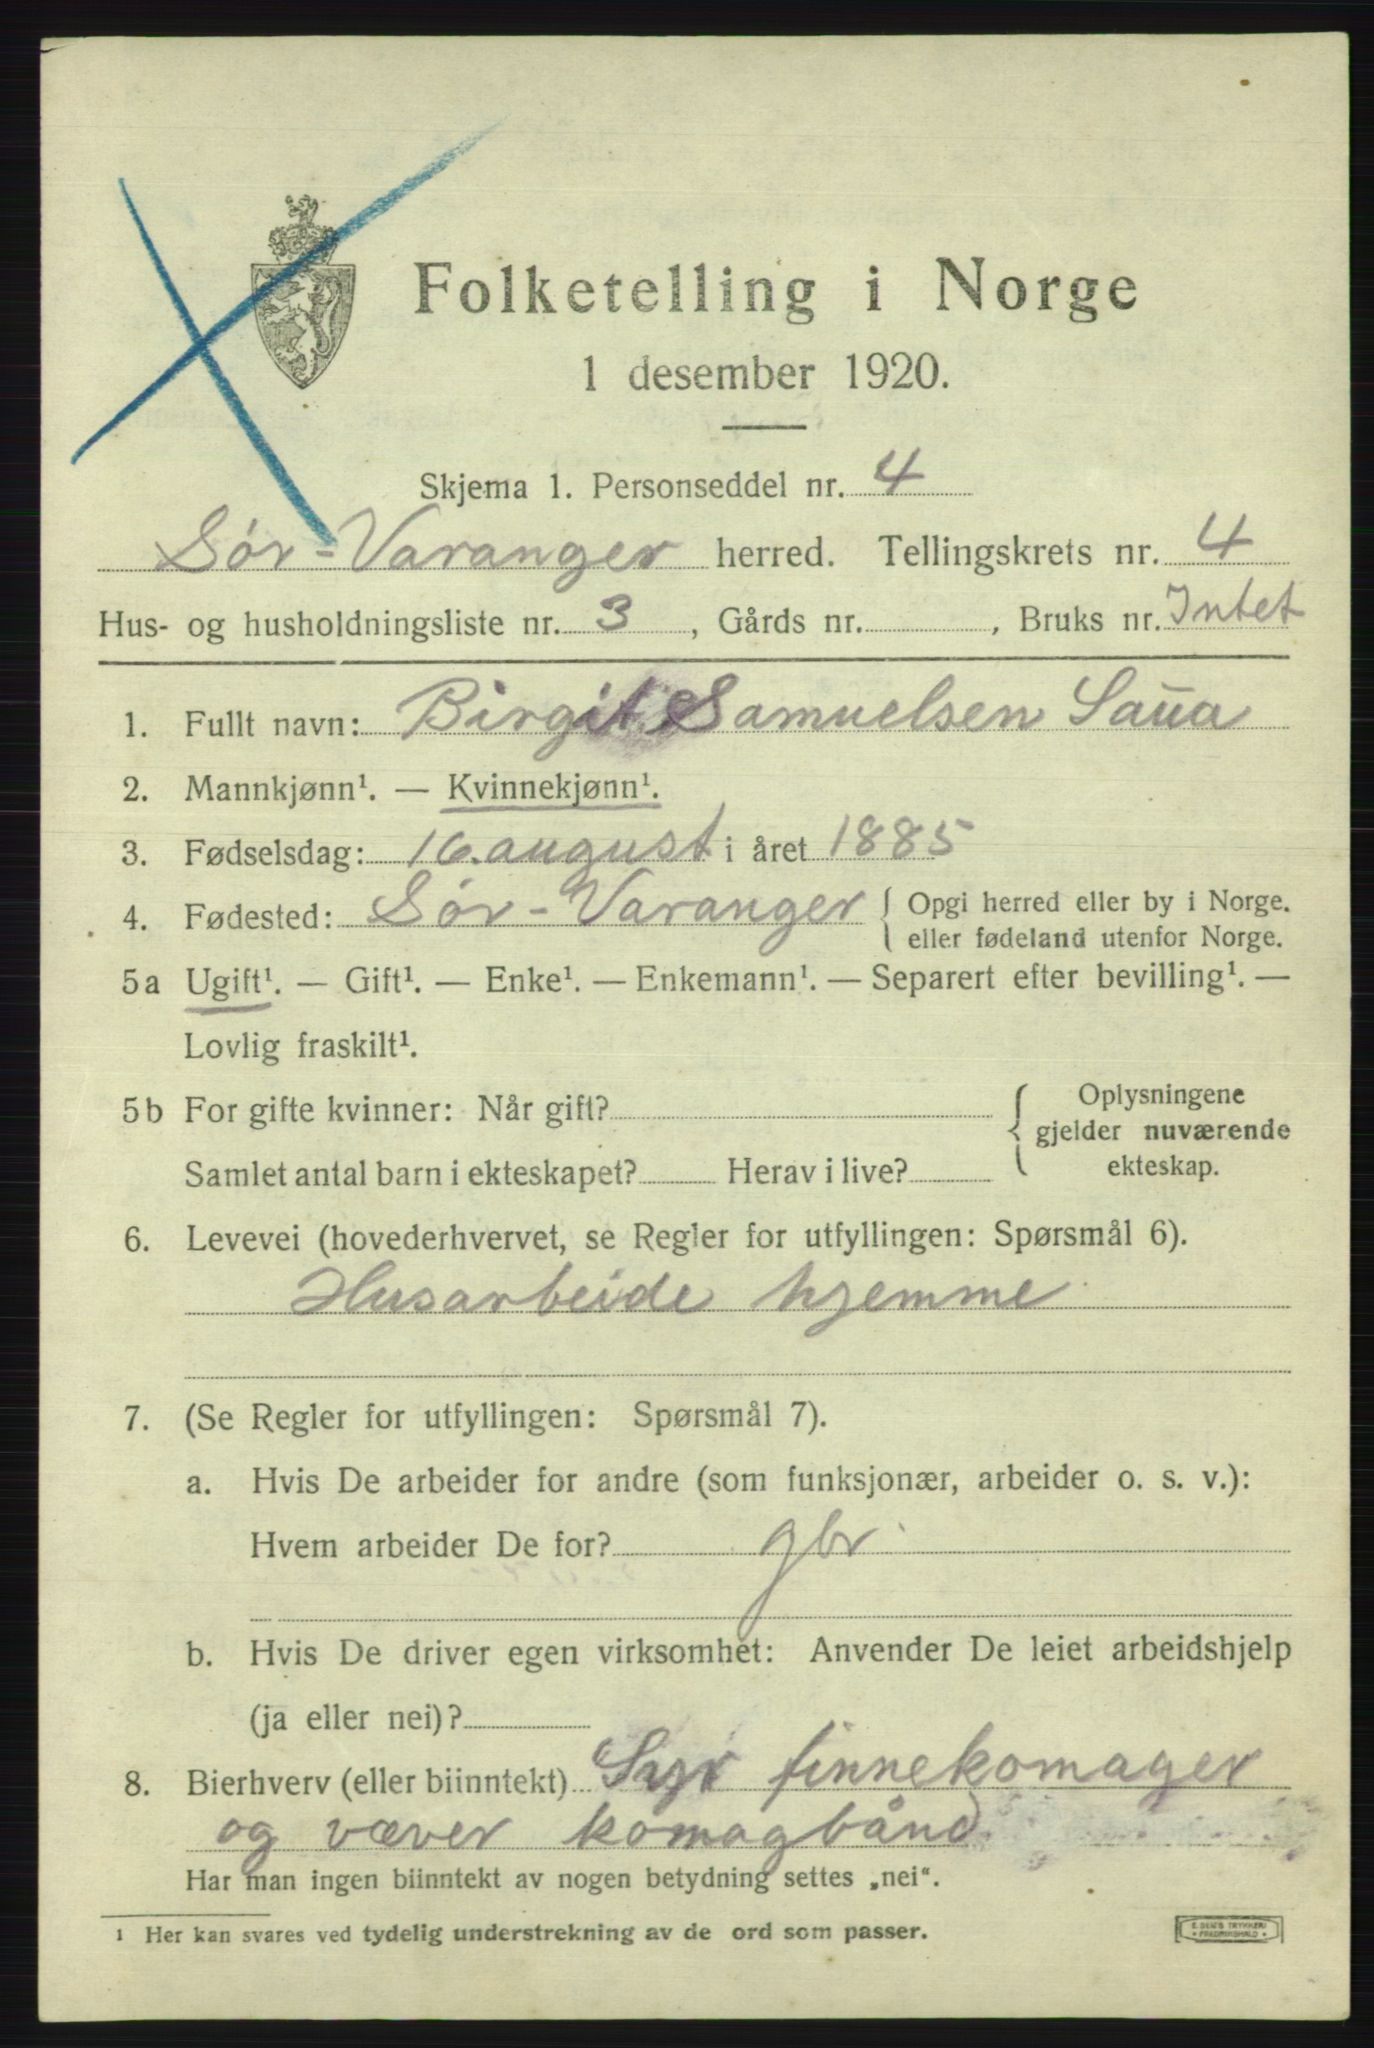 Folketelling i Norge
1 desember 1920.
Skjema 1. Personseddel nr. 4
Sør-Varanger herred. Tellingskrets nr. 4
Hus- og husholdningsliste nr. 3, Gårds nr. , Bruks nr. Intet
1. Fullt navn: Birgit Samuelsen Saūa
2. Mannkjønn¹. — Kvinnekjønn¹.
3. Fødselsdag: 16. august i året 1885
4. Fødested: Sør-Varanger { Opgi herred eller by i Norge.
eller fødeland utenfor Norge.
5a Ugift¹. — Gift¹. — Enke¹. — Enkemann¹. — Separert efter bevilling¹. —
Lovlig fraskilt¹.
5b For gifte kvinner: Når gift? { Oplysningene
gjelder nuværende
Samlet antal barn i ekteskapet? Herav i live? ekteskap.
6. Levevei (hovederhvervet, se Regler for utfyllingen: Spørsmål 6).
Husarbeide hjemme
7. (Se Regler for utfyllingen: Spørsmål 7).
a. Hvis De arbeider for andre (som funksjonær, arbeider o. s. v.):
Hvem arbeider De for? gbr
b. Hvis De driver egen virksomhet: Anvender De leiet arbeidshjelp
(ja eller nei)?
8. Bierhverv (eller biinntekt) Syr finnekomager
og væver komagbånd
Har man ingen biinntekt av nogen betydning settes „nei“.
¹ Her kan svares ved tydelig understrekning av de ord som passer.